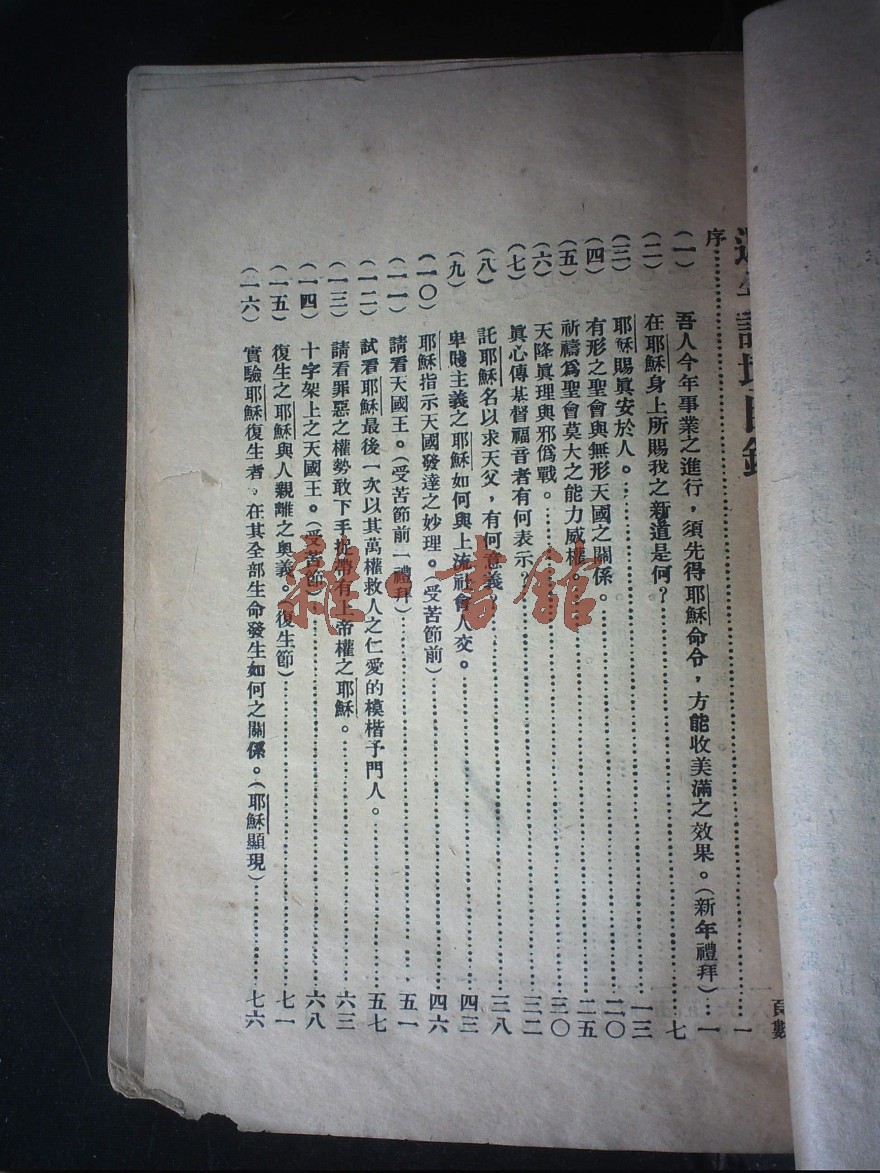 講壇目錄
頁數
序 一
(一) 吾人今年事業之進行，須先得耶穌命令，方能收美滿之效果。(新年禮拜) 一
(二) 在耶穌身上所賜我之新道是何？ 七
(三) 耶穌賜眞安於人。 一三
(四) 有形之聖會與無形天國之關係。 二〇
(五) 祈禱爲聖會莫大之能力威權。 二五
(六) 天降眞理與邪僞戰。 三〇
(七) 眞心傳基督福音者有何表示？ 三二
(八) 託耶穌名以求天父，有何意義？ 三八
(九) 卑賤主義之耶穌如何與上流社會人交。 四三
(一〇) 耶穌指示天國發達之妙理。(受苦節前) 四六
(一一) 請看天國王。(受苦節前一禮拜) 五一
(一二) 試看耶穌最後一次以其萬權救人之仁愛的模楷予門人。 五七
(一三) 請看罪惡之權勢敢下手捉帶有上帝權之耶穌。 六三
(一四) 十字架上之天國王。(受苦節) 六八
(一五) 復生之耶穌與人親離之奥義。(復生節) 七一
(一六) 實驗耶穌復生者，在其全部生命發生如何之關係。(耶穌顯現) 七六
雜·書館